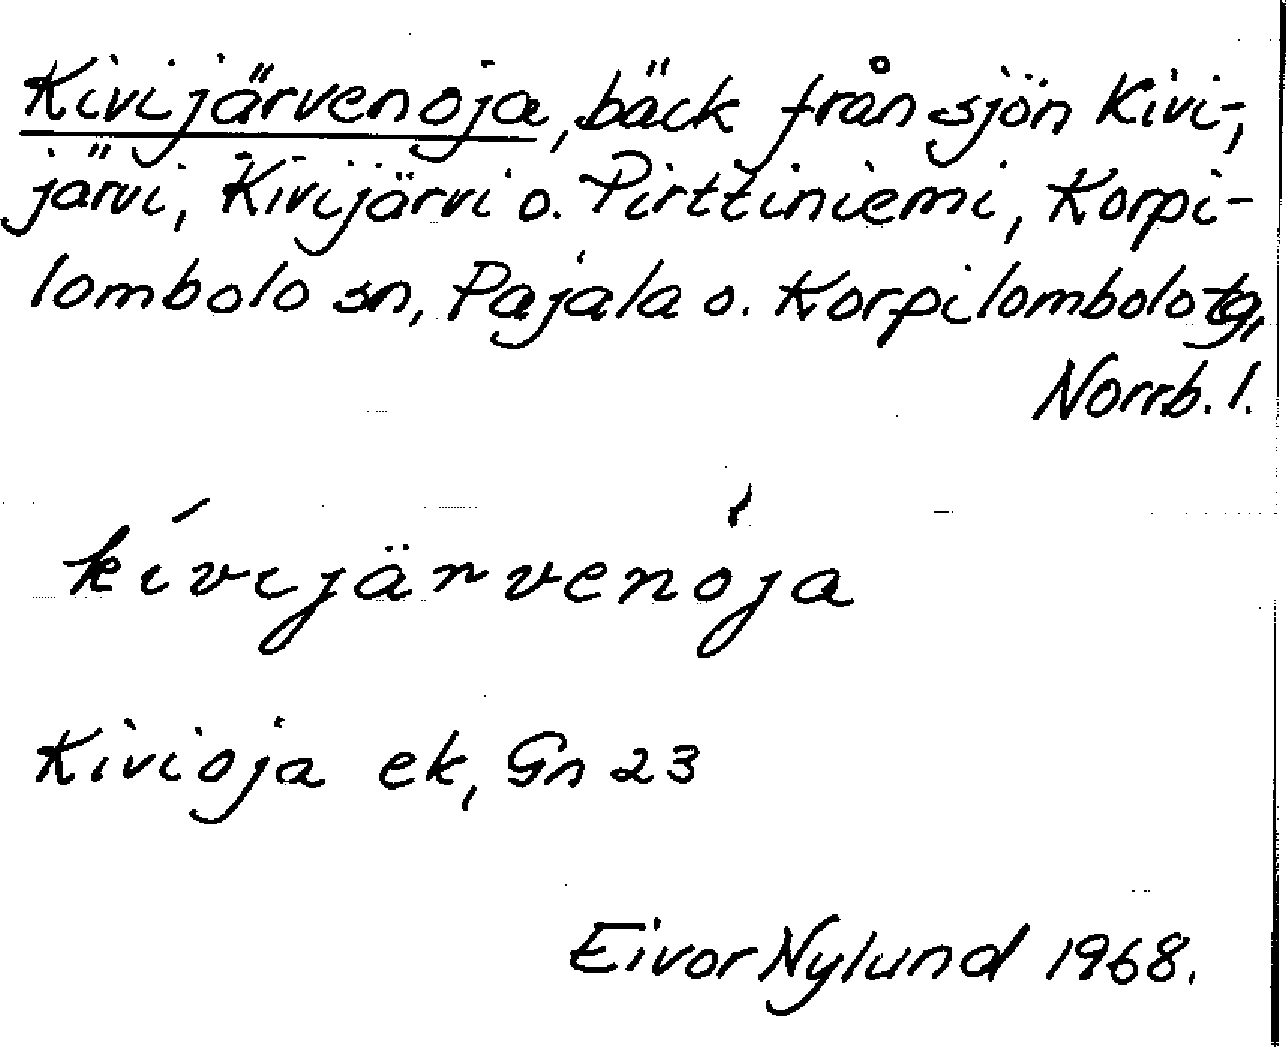 Kivijärvenoja, bäck från sjön Kivi-,
järvi, Kivijärvi o. Pirttiniemi, Korpi-
lombolo sn, Pajala o. Korpilombolo tg,
Norrb. l.
kívijärvenòja
Kivioja ek, Gn 23
Eivor Nylund 1968.